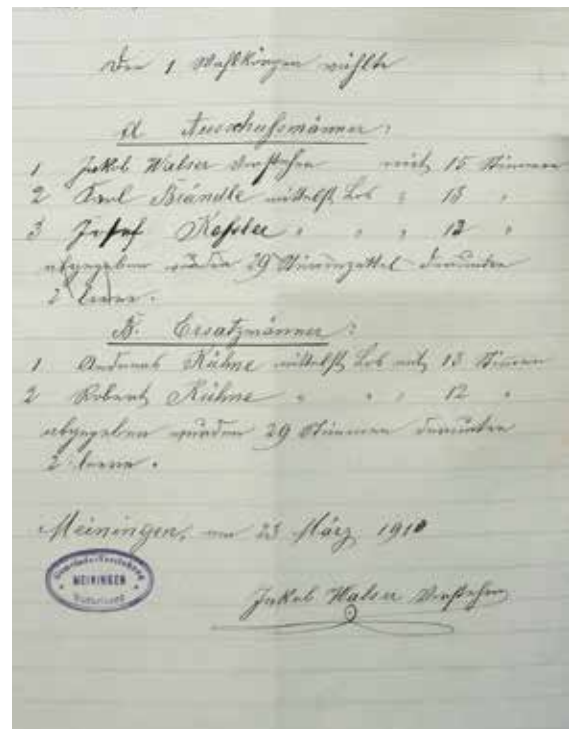 Der 1 Wahlkörper wählte
A Ausschußmänner:
1 Jakob Walser Vorsteher mit 15 Stimmen
2 Karl Brändle mittelst Los " 13 "
3 Josef Kessler " " " 12 "
abgegeben wurden 29 Stimmzettel darunter
2 leere.
B. Ersatzmänner:
1 Andreas Kühne mittelst Los mit 13 Stimmen
2 Robert Kühne " " " 12 "
abgegeben wurden 29 Stimmen darunter
2 leere.
Meiningen, am 23 März 1910
Gemeinde-Vorstehung
MEININGEN
Jakob Walser Vorsteher